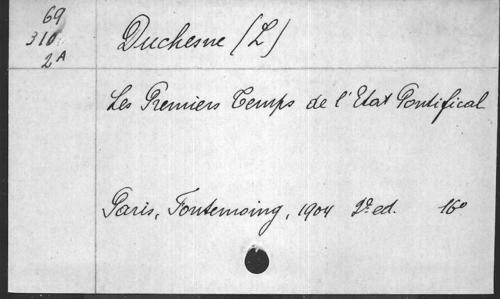 69
310
2A
Duchesne (L)
Les Premiers Temps de l'Etat Pontifical
Paris, Fontemoing, 1904 2e ed. 16o